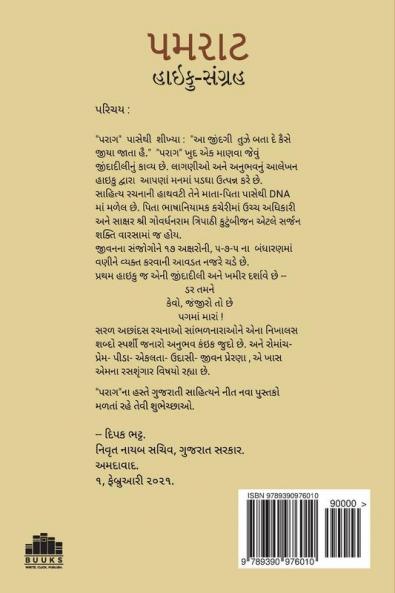 પમરાટ
હાઇકુ-સંગ્રહ
પરિચય :
"પરાગ" પાસેથી શીખ્યા : "આ જીંદગી તુઝે બતા દે કૈસે
જીયા જાતા હૈ." "પરાગ" ખુદ એક માણવા જેવું
જીંદાદીલીનું કાવ્ય છે. લાગણીઓ અને અનુભવનું આલેખન
હાઇકુ દ્વારા આપણાં મનમાં પડઘા ઉત્પન્ન કરે છે.
સાહિત્ય રચનાની હાથવટી તેને માતા-પિતા પાસેથી DNA
માં મળેલ છે. પિતા ભાષાનિયામક કચેરીમાં ઉચ્ચ અધિકારી
અને સાક્ષર શ્રી ગોવર્ધનરામ ત્રિપાઠી કુટુંબીજન એટલે સર્જન
શક્તિ વારસામાં જ હોય.
જીવનના સંજોગોને ૧૭ અક્ષરોની, ૫-૭-૫ ના બંધારણમાં
વણીને વ્યક્ત કરવાની આવડત નજરે ચડે છે.
પ્રથમ હાઇકુ જ એની જીંદાદીલી અને ખમીર દર્શાવે છે –
ડર તમને
કેવો, જંજીરો તો છે
પગમાં મારાં !
સરળ અછાંદસ રચનાઓ સાંભળનારાઓને એના નિખાલસ
શબ્દો સ્પર્શી જનારો અનુભવ કંઇક જુદો છે. અને રોમાંચ-
પ્રેમ- પીડા- એકલતા- ઉદાસી- જીવન પ્રેરણા , એ ખાસ
એમના રસશૃંગાર વિષયો રહ્યા છે.
"પરાગ"ના હસ્તે ગુજરાતી સાહિત્યને નીત નવા પુસ્તકો
મળતાં રહે તેવી શુભેચ્છાઓ.
– દિપક ભટ્ટ.
નિવૃત નાયબ સચિવ, ગુજરાત સરકાર.
અમદાવાદ.
૧, ફેબ્રુઆરી ૨૦૨૧.
ISBN 9789390976010
90000 >
9 789390 976010
BUUKS
WRITE, CLICK, PUBLISH.